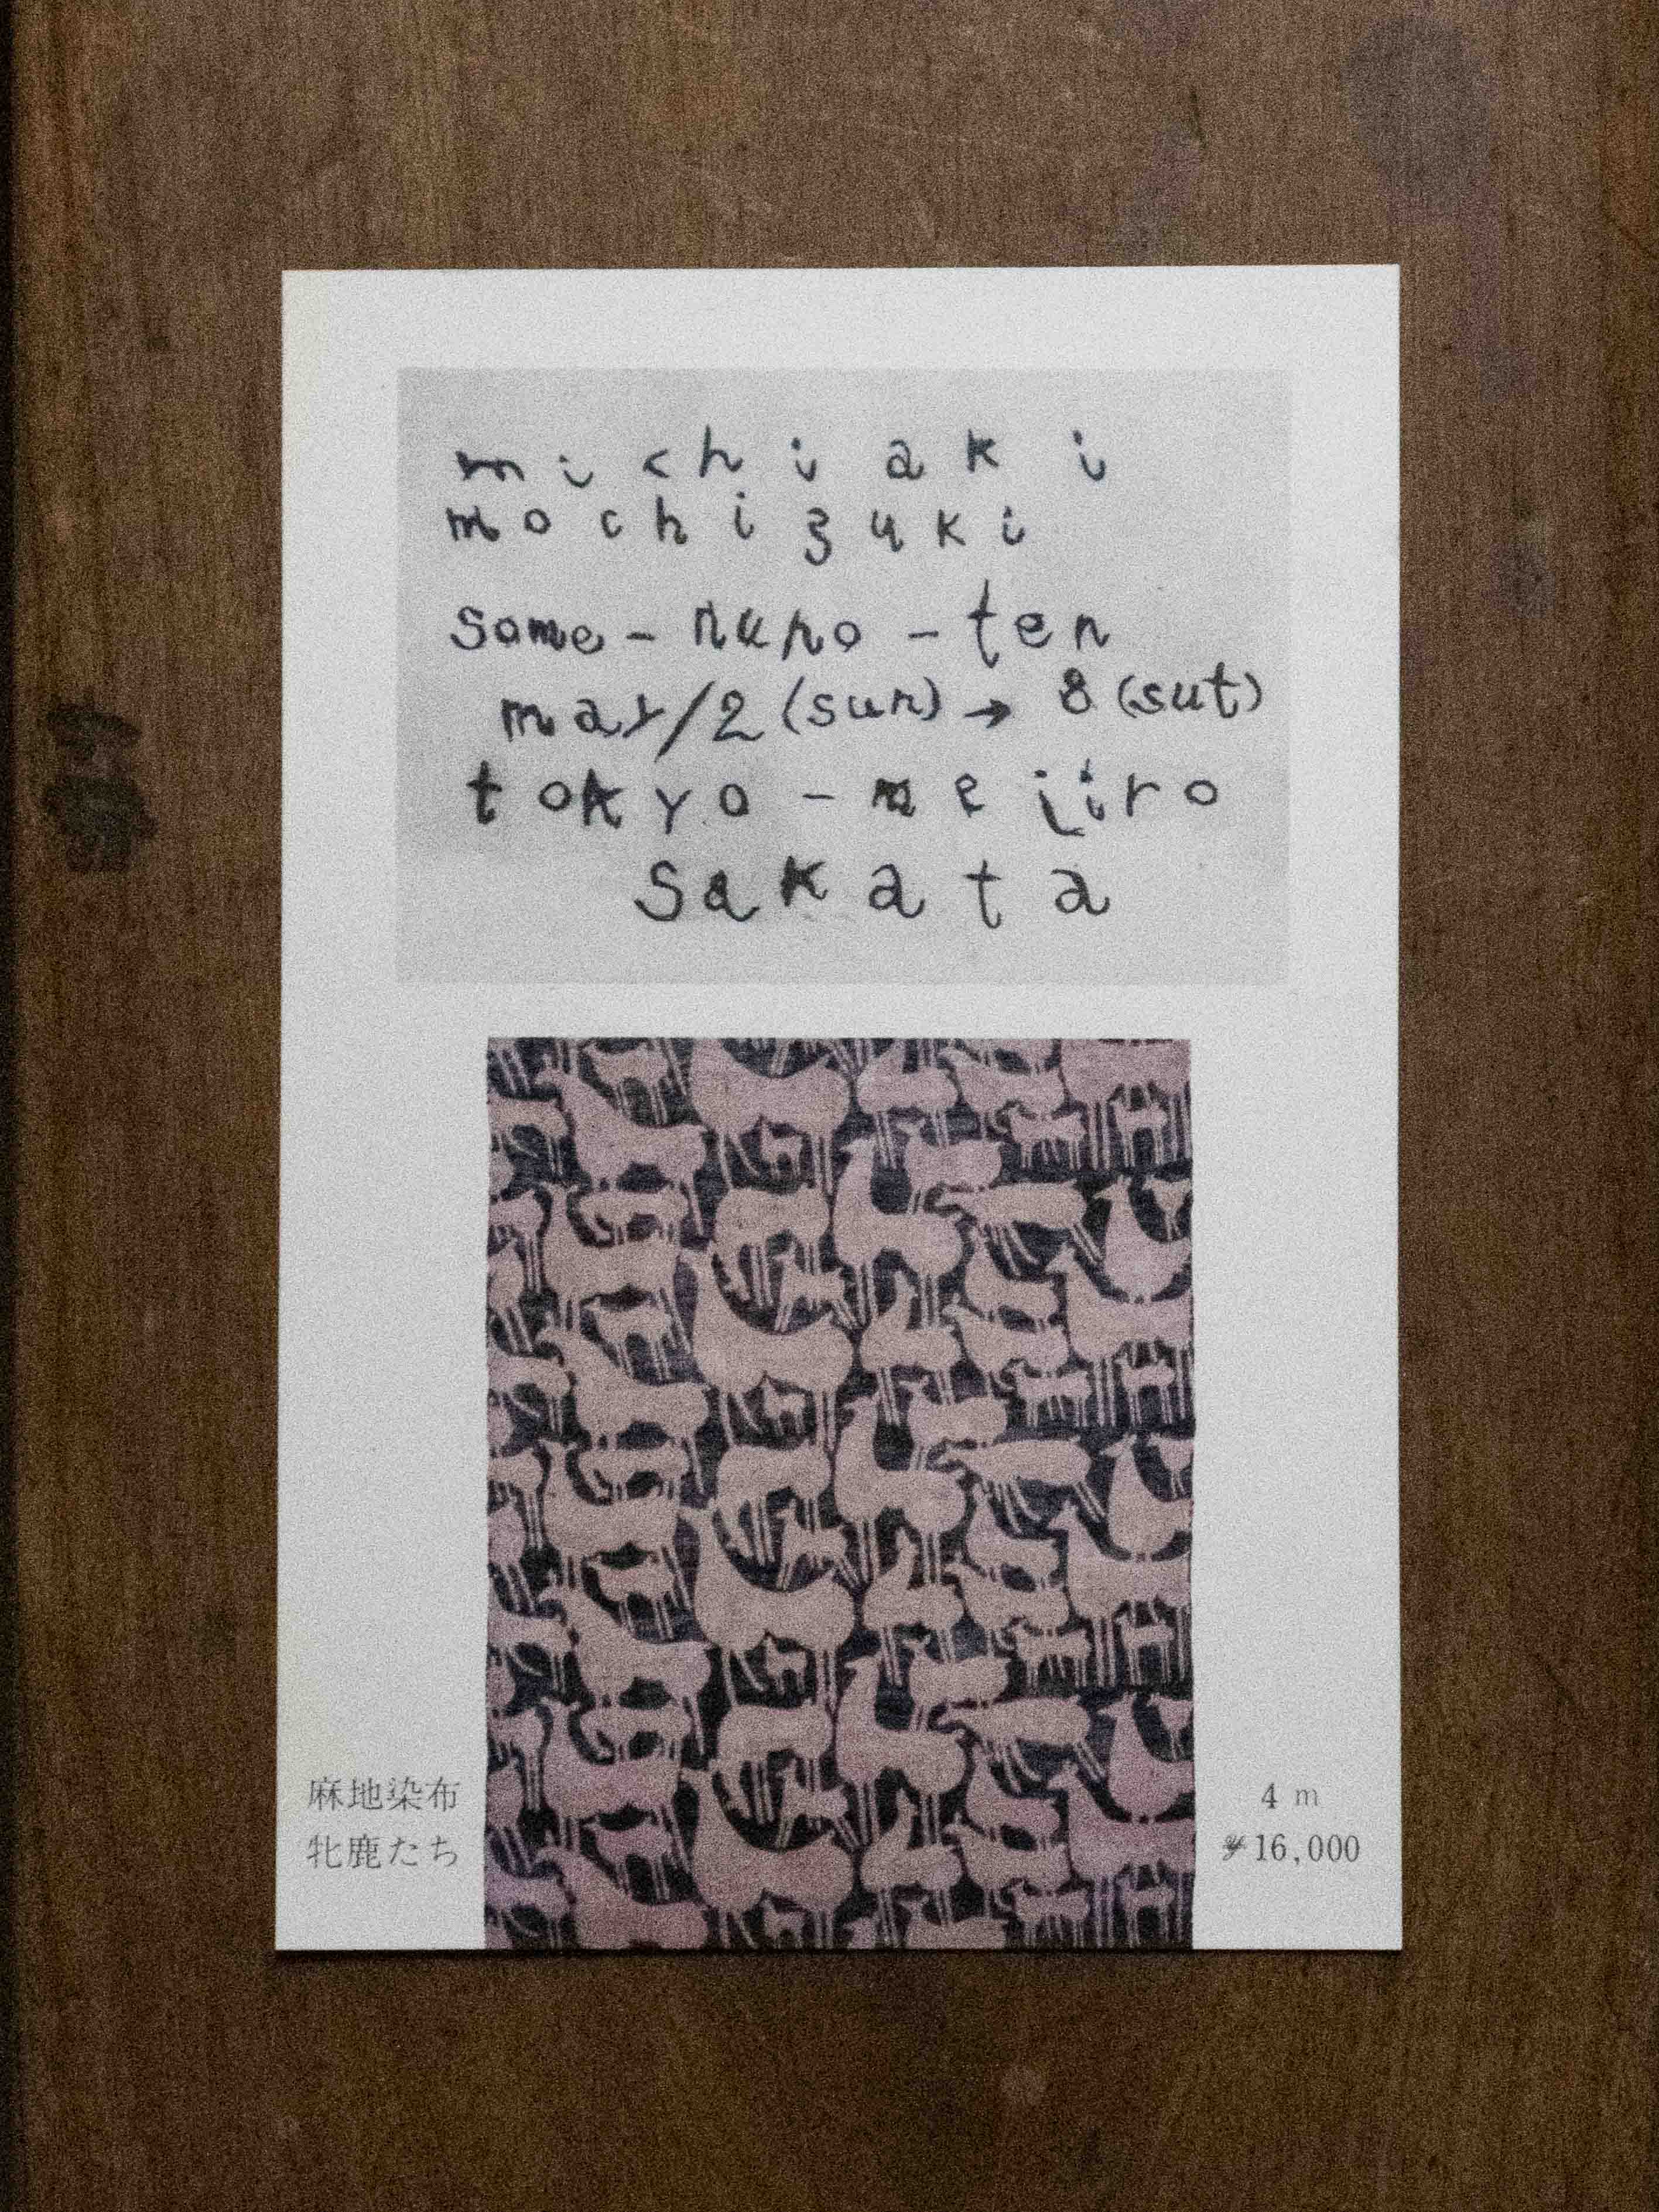 michiaki
mochizuki
some-nuno-ten
may/2(sun)→8(sut)
tokyo-mejiro
sakata
麻地染布
牝鹿たち
4m
¥16,000